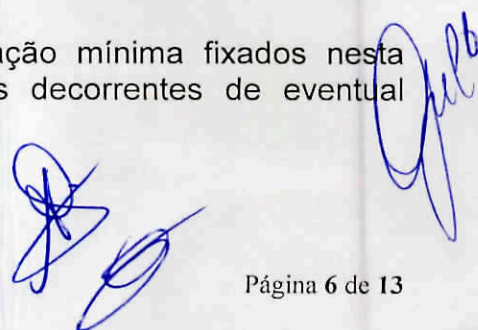 ação mínima fixados nesta
s decorrentes de eventual
Página 6 de 13